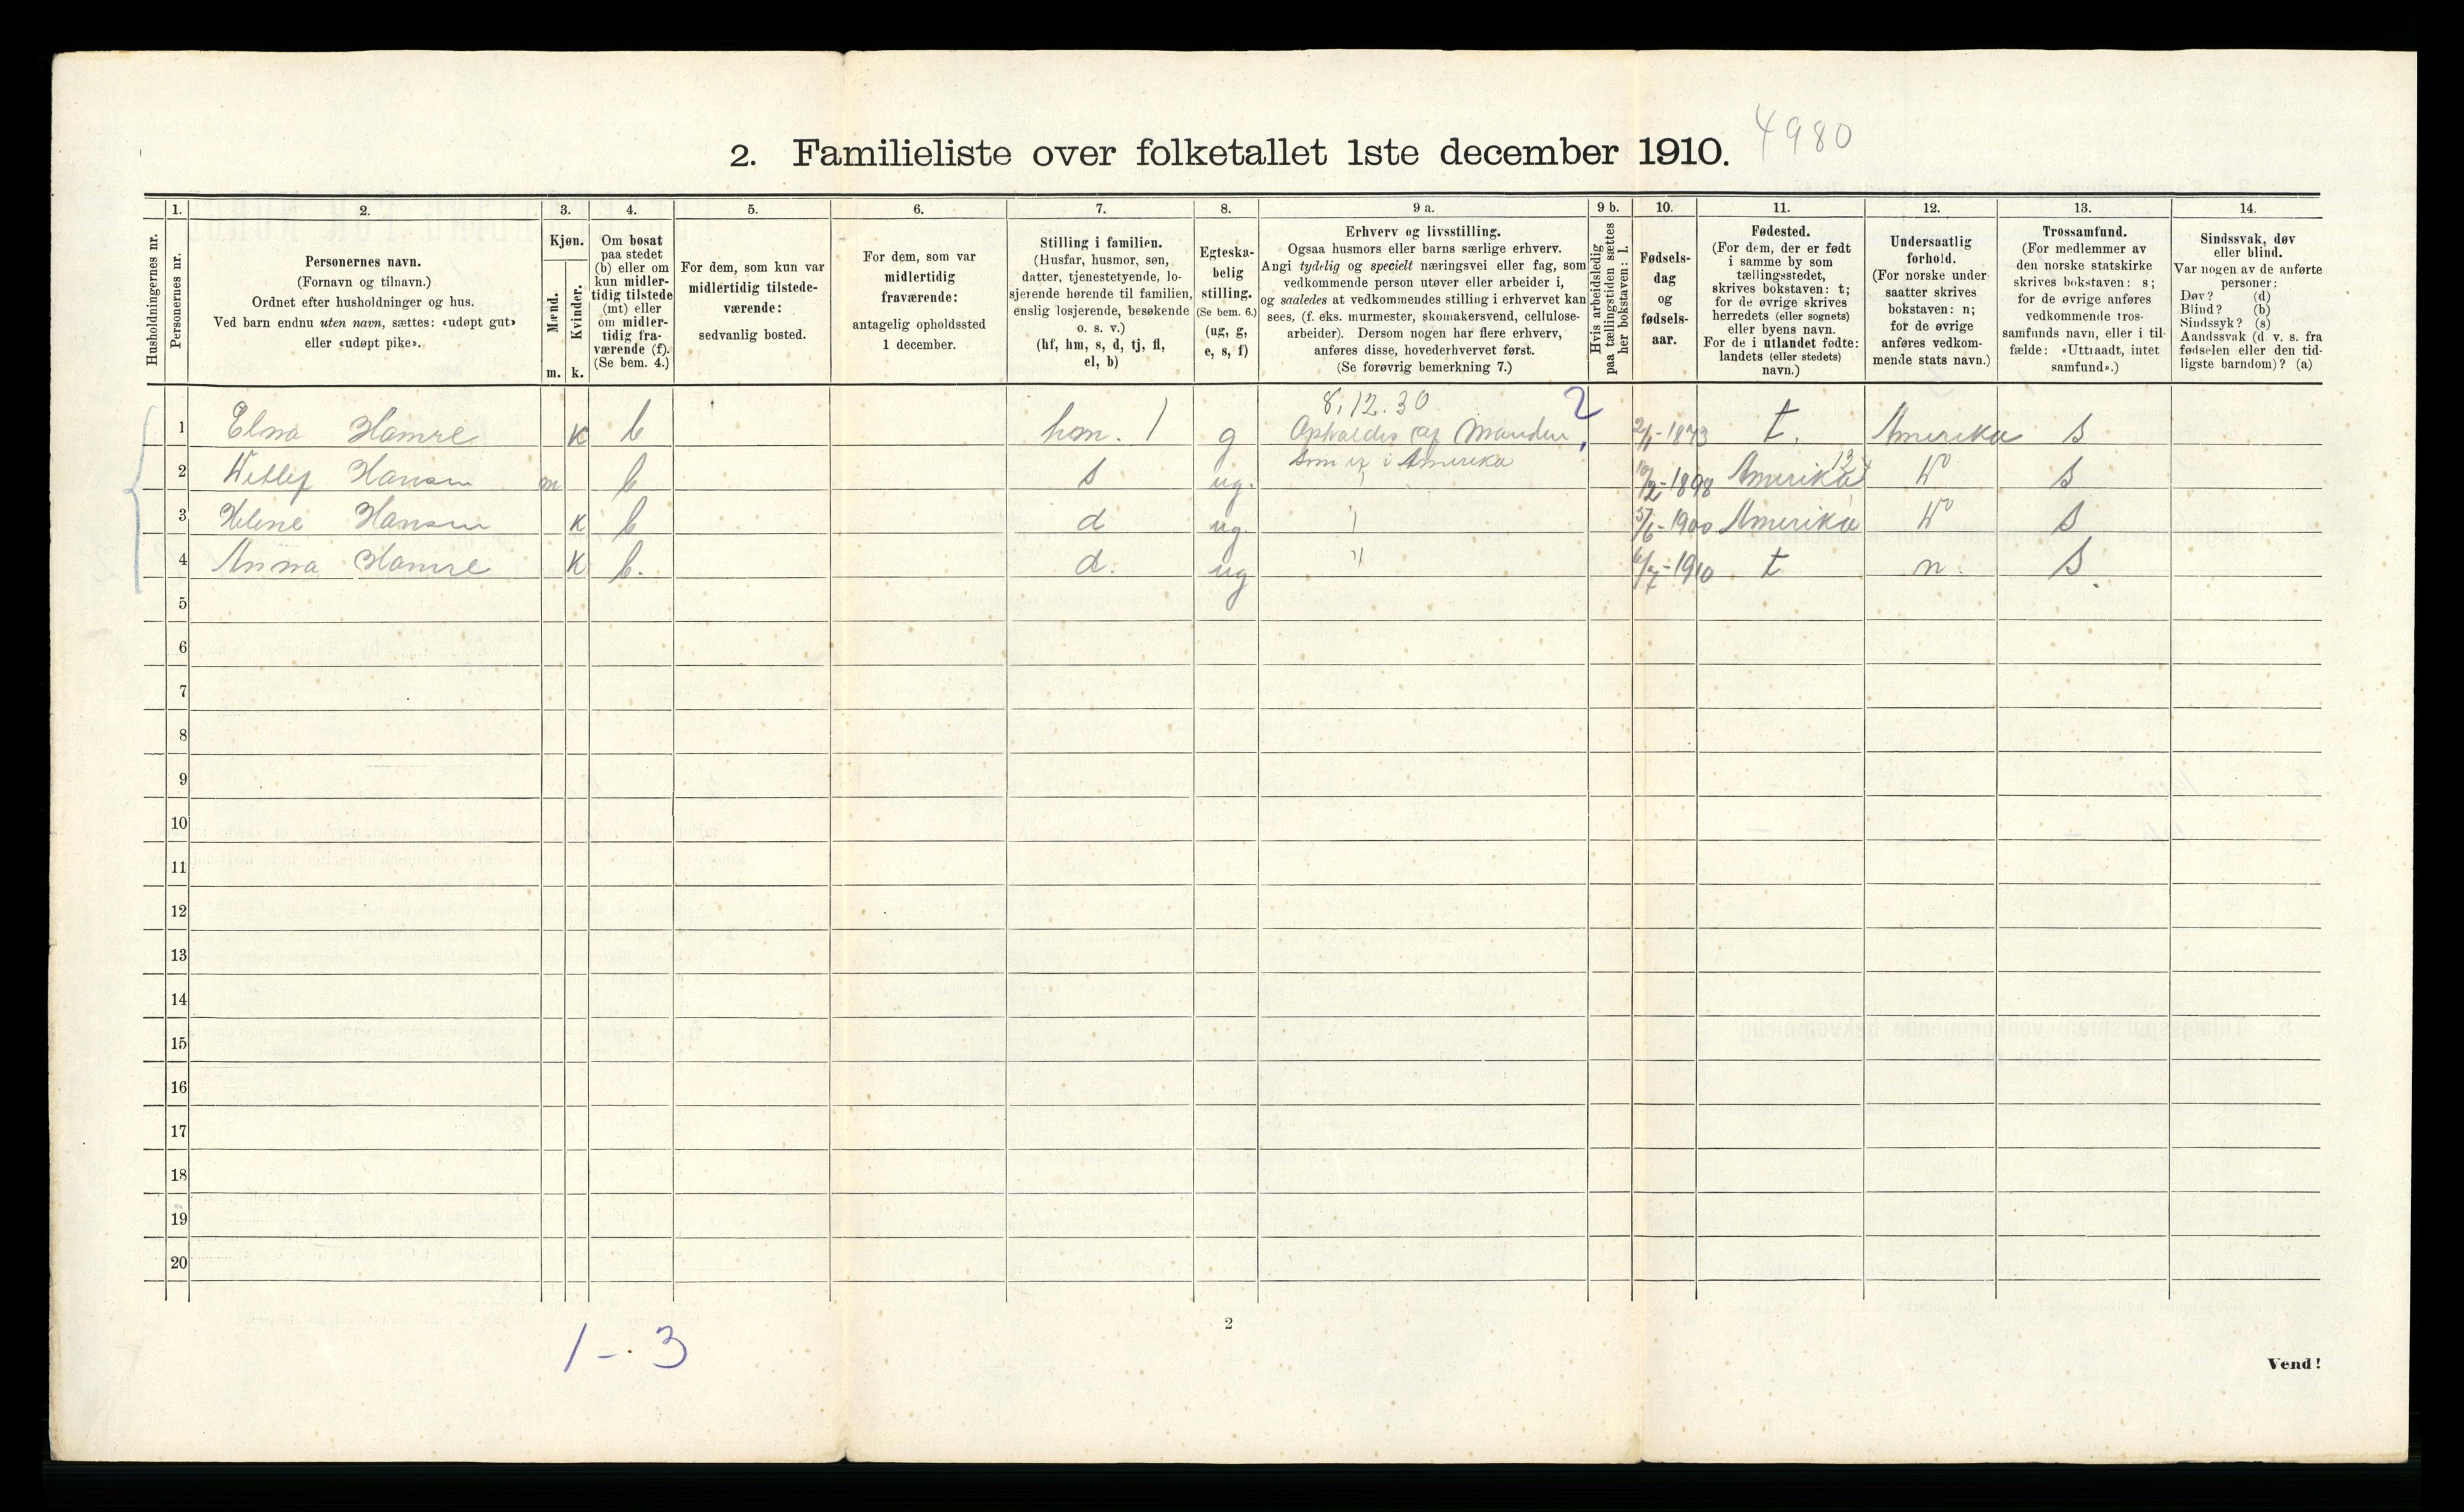 4980
2. Familieliste over folketallet 1ste december 1910.
Husholdningernes nr.
1.
Personernes nr.
2.
Personernes navn.
(Fornavn og tilnavn.)
Ordnet efter husholdninger og hus.
Ved barn endnu uten navn, sættes: «udøpt gut»
eller «udøpt pike».
3.
Kjøn.
Mænd.
Kvinder.
m. k.
4.
Om bosat
paa stedet
(b) eller om
kun midler-
tidig tilstede
(mt) eller
om midler-
tidig fra-
værende (f).
(Se bem. 4.)
5.
For dem, som kun var
midlertidig tilstede-
værende:
sedvanlig bosted.
6.
For dem, som var
midlertidig
fraværende:
antagelig opholdssted
1 december.
7.
Stilling i familien.
(Husfar, husmor, søn,
datter, tjenestetyende, lo-
sjerende hørende til familien,
enslig losjerende, besøkende
o. s. v.)
(hf, hm, s, d, tj, fl,
el, b)
8.
Egteska-
belig
stilling.
(Se bem. 6.)
(ug, g,
e, s, f)
9 a.
Erhverv og livsstilling.
Ogsaa husmors eller barns særlige erhverv.
Angi tydelig og specielt næringsvei eller fag, som
vedkommende person utøver eller arbeider i,
og saaledes at vedkommendes stilling i erhvervet kan
sees, (f. eks. murmester, skomakersvend, cellulose-
arbeider). Dersom nogen har flere erhverv,
anføres disse, hovederhvervet først.
(Se forøvrig bemerkning 7.)
9 b.
Hvis arbeidsledig
paa tællingstiden sættes
her bokstaven: l.
10.
Fødsels-
dag
og
fødsels-
aar.
11.
Fødested.
(For dem, der er født
i samme by som
tællingsstedet,
skrives bokstaven: t;
for de øvrige skrives
herredets (eller sognets)
eller byens navn.
For de i utlandet fødte:
landets (eller stedets)
navn.)
12.
Undersaatlig
forhold.
(For norske under-
saatter skrives
bokstaven: n;
for de øvrige
anføres vedkom-
mende stats navn.)
13.
Trossamfund.
(For medlemmer av
den norske statskirke
skrives bokstaven: s;
for de øvrige anføres
vedkommende tros-
samfunds navn, eller i til-
fælde: «Uttraadt, intet
samfund».)
14.
Sindssvak, døv
eller blind.
Var nogen av de anførte
personer:
Døv? (d)
Blind? (b)
Sindssyk? (s)
Aandssvak (d. v. s. fra
fødselen eller den tid-
ligste barndom)? (a)
8.12.30 2
1 Elna Hamre K b hm. 1 g Opholdes af Manden, 2/1-1873 t. Amerika s
som er i Amerika
2 Hansen m b s ug. 10/2-1898 Amerika s
3 Helene Hansen K b d ug. " 5/6-1900 Amerika s
4 Anna Hamre K b. d. ug " 6/7-1910 t n. s.
5
6
7
8
9
10
11
12
13
14
15
16
17
18
19
20
1 - 3
2
Vend!